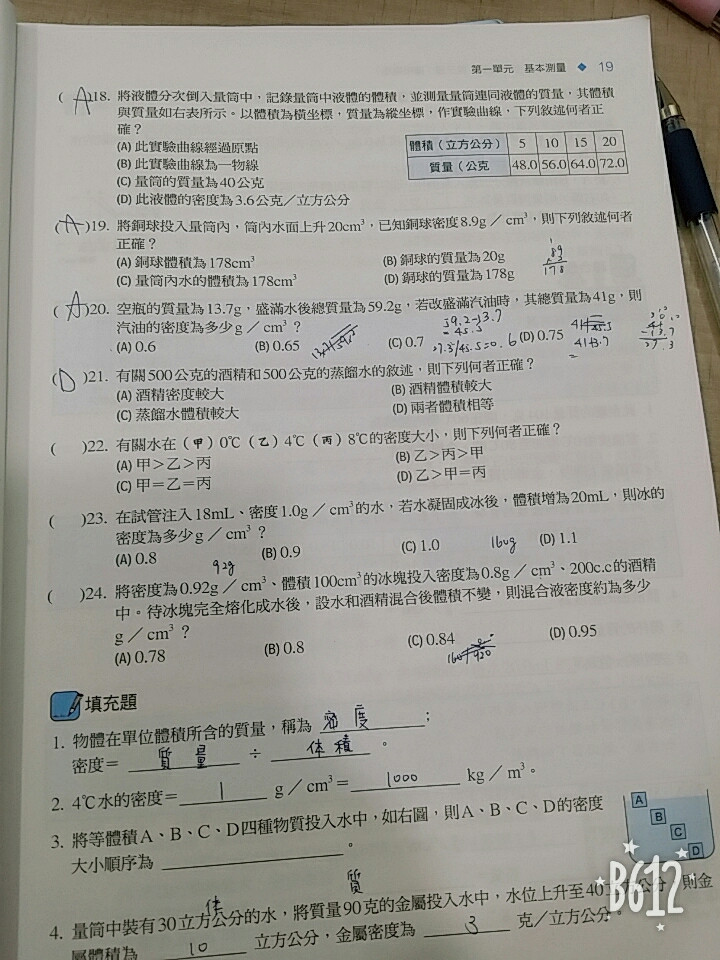 第一單元 基本測量 ◆ 19
(A)18. 將液體分次倒入量筒中，記錄量筒中液體的體積，並測量量筒連同液體的質量，其體積
與質量如右表所示。以體積為橫坐標，質量為縱坐標，作實驗曲線，下列敘述何者正
確？
(A) 此實驗曲線經過原點
(B) 此實驗曲線為一物線
(C) 量筒的質量為40公克
(D) 此液體的密度為3.6公克／立方公分
體積（立方公分） 5 10 15 20
質量（公克 48.0 56.0 64.0 72.0
(A)19. 將銅球投入量筒內，筒內水面上升20cm³，已知銅球密度8.9g／cm³，則下列敘述何者
正確？
(A) 銅球體積為178cm³ (B) 銅球的質量為20g
(C) 量筒內水的體積為178cm³ (D) 銅球的質量為178g
178
(A)20. 空瓶的質量為13.7g，盛滿水後總質量為59.2g，若改盛滿汽油時，其總質量為41g，則
汽油的密度為多少g／cm³？
59.2-13.7
=45.5
(A) 0.6 (B) 0.65 (C) 0.7 27.3/45.5=0.6 (D) 0.75
27.3
(D)21. 有關500公克的酒精和500公克的蒸餾水的敘述，則下列何者正確？
(A) 酒精密度較大 (B) 酒精體積較大
(C) 蒸餾水體積較大 (D) 兩者體積相等
( )22. 有關水在（甲）0℃（乙）4℃（丙）8℃的密度大小，則下列何者正確？
(A) 甲＞乙＞丙 (B) 乙＞丙＞甲
(C) 甲＝乙＝丙 (D) 乙＞甲＝丙
( )23. 在試管注入18mL、密度1.0g／cm³的水，若水凝固成冰後，體積增為20mL，則冰的
密度為多少g／cm³？
(A) 0.8 (B) 0.9 (C) 1.0 (D) 1.1
92g 160g
( )24. 將密度為0.92g／cm³、體積100cm³的冰塊投入密度為0.8g／cm³、200c.c的酒精
中。待冰塊完全熔化成水後，設水和酒精混合後體積不變，則混合液密度約為多少
g／cm³？
(A) 0.78 (B) 0.8 (C) 0.84 (D) 0.95
填充題
1. 物體在單位體積所含的質量，稱為 密度；
密度＝ 質量 ÷ 体積。
2. 4℃水的密度＝ 1 g／cm³＝ 1000 kg／m³。
3. 將等體積A、B、C、D四種物質投入水中，如右圖，則A、B、C、D的密度
大小順序為 。
A
B
C
D
体 質
4. 量筒中裝有30立方公分的水，將質量90克的金屬投入水中，水位上升至40立方公分，則金
屬體積為 10 立方公分，金屬密度為 3 克／立方公分。
B612